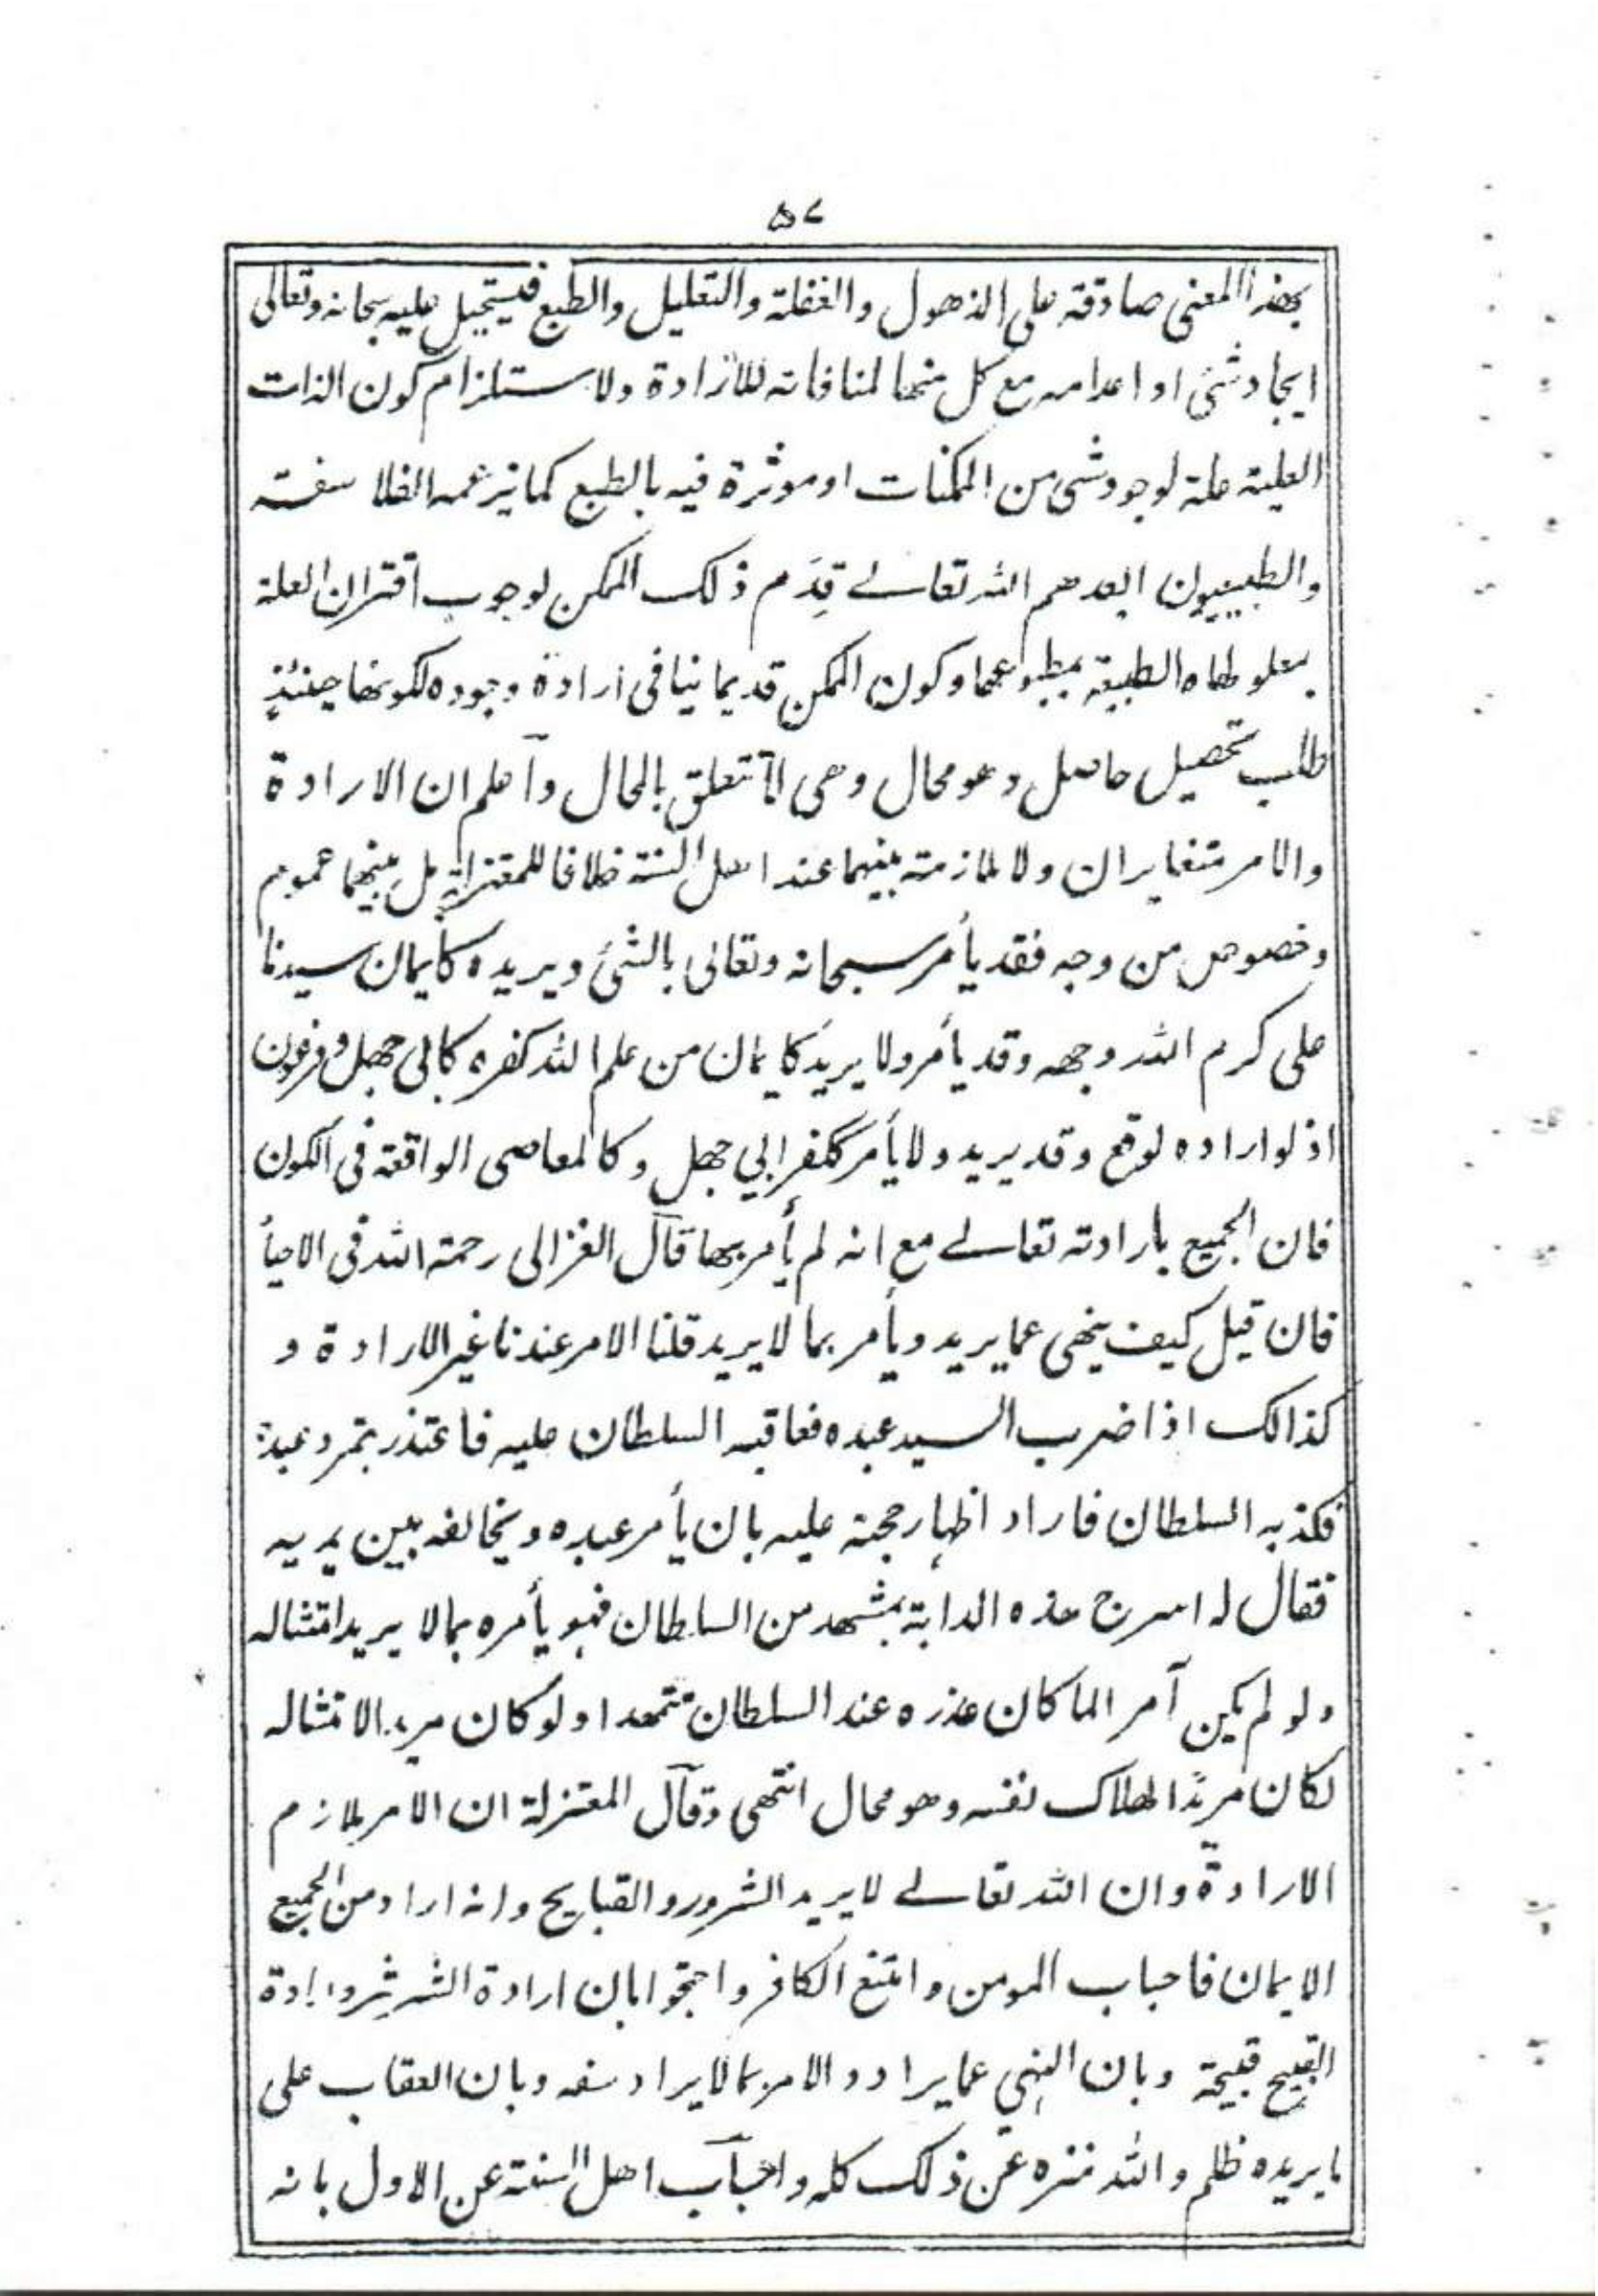 ٥٧
بهذا المعنى صادقة على الذهول والغفلة والتعليل والطبع فيستحيل عليه سبحانه وتعالى
ايجاد شئ او اعدامه مع كل منها لمنافاته للارادة ولاستلزام كون الذات
العلية علة لوجود شى من الممكنات او موثرة فيه بالطبع كما يزعمه الفلاسفة
والطبيعيون ابعدهم الله تعالے قِدَم ذلك الممكن لوجوب اقتران العلة
بمعلولها والطبيعة بمطبوعها وكون الممكن قديما ينافى ارادة وجوده لكونها حينئذٍ
طلب تحصيل حاصل وهو محال وهى لا تتعلق بالمحال وآعلم ان الارادة
والامر متغايران ولا ملازمة بينهما عند اهل السنة خلافا للمعتزلة بل بينهما عموم
وخصوص من وجه فقد يأمر سبحانه وتعالى بالشئ ويريده كايمان سيدنا
على كرم الله وجهه وقد يأمر ولا يريد كايمان من علم الله كفره كابى جهل وفرعون
اذ لو اراده لوقع وقد يريد ولا يأمر ككفر ابي جهل وكالمعاصى الواقعة فى الكون
فان الجميع بارادته تعالے مع انه لم يأمر بها قآل الغزالى رحمة الله فى الاحيأ
فان قيل كيف ينهى عما يريد ويأمر بما لا يريد قلنا الامر عندنا غير الارادة و
كذالك اذا ضرب السيد عبده فعاقبه السلطان عليه فاعتذر بتمرد عبده
فكذبه السلطان فاراد اظهار حجته عليه بان يأمر عبده ويخالفه بين يديه
فقال له اسرج هذه الدابة بمشهد من السلطان فهو يأمره بما لا يريد امتثاله
ولو لم يكن آمرا لما كان عذره عند السلطان متمهدا ولو كان مريدا لامتثاله
لكان مريدًا لهلاك نفسه وهو محال انتهى وقآل المعتزلة ان الامر يلازم
الارادة وان الله تعالے لا يريد الشرور والقبايح وانه اراد من الجميع
الايمان فاجاب المومن وامتنع الكافر واحتجوا بان ارادة الشر شر وارادة
القبيح قبيحة وبان النهي عما يراد والامر بما لا يراد سفه وبان العقاب على
ما يريده ظلم والله منزه عن ذلك كله واجآب اهل السنة عن الاول بانه